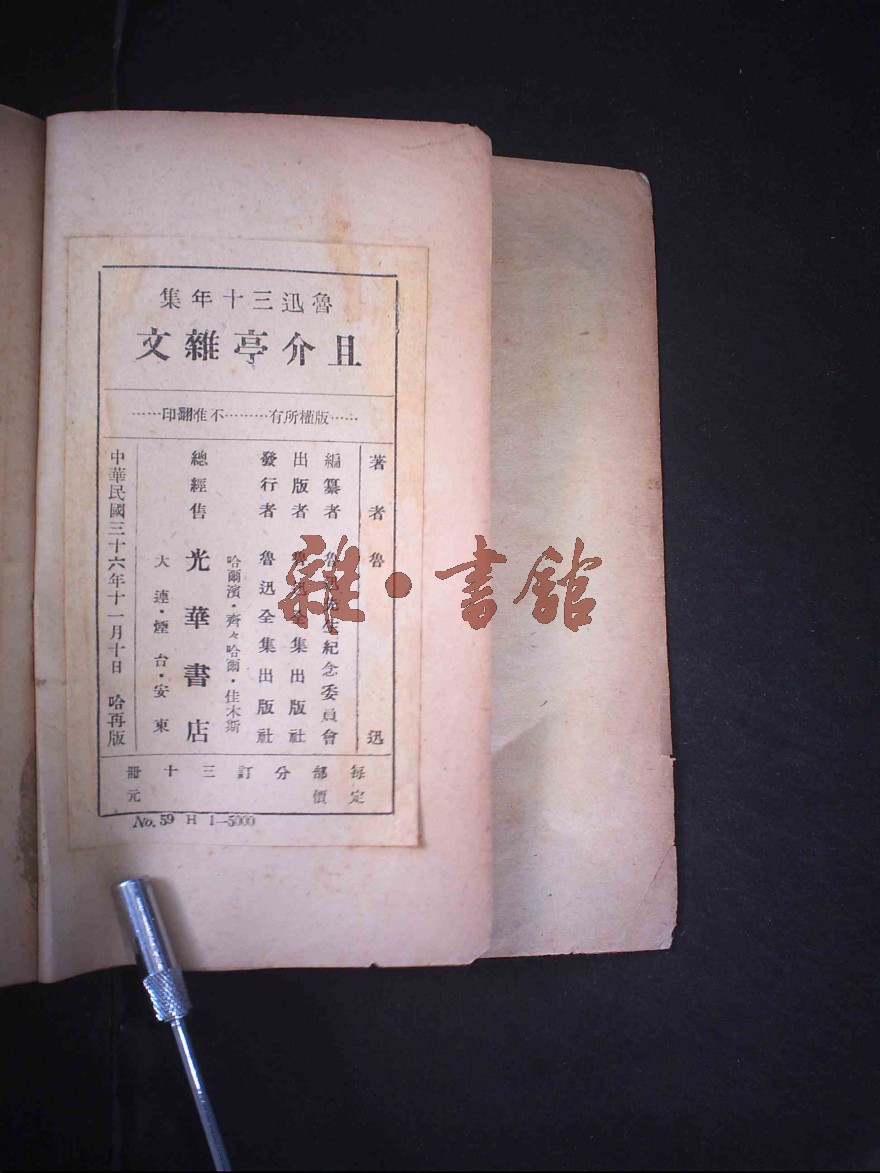 魯迅三十年集
且介亭雜文
……版權所有………不准翻印……
著者 魯迅
編纂者 魯迅先生紀念委員會
出版者 魯迅全集出版社
發行者 魯迅全集出版社
哈爾濱·齊々哈爾·佳木斯
總經售 光華書店
大連·煙台·安東
中華民國三十六年十一月十日 哈再版
每部分訂三十冊
定價 元
No. 59 H 1—5000
雜·書館